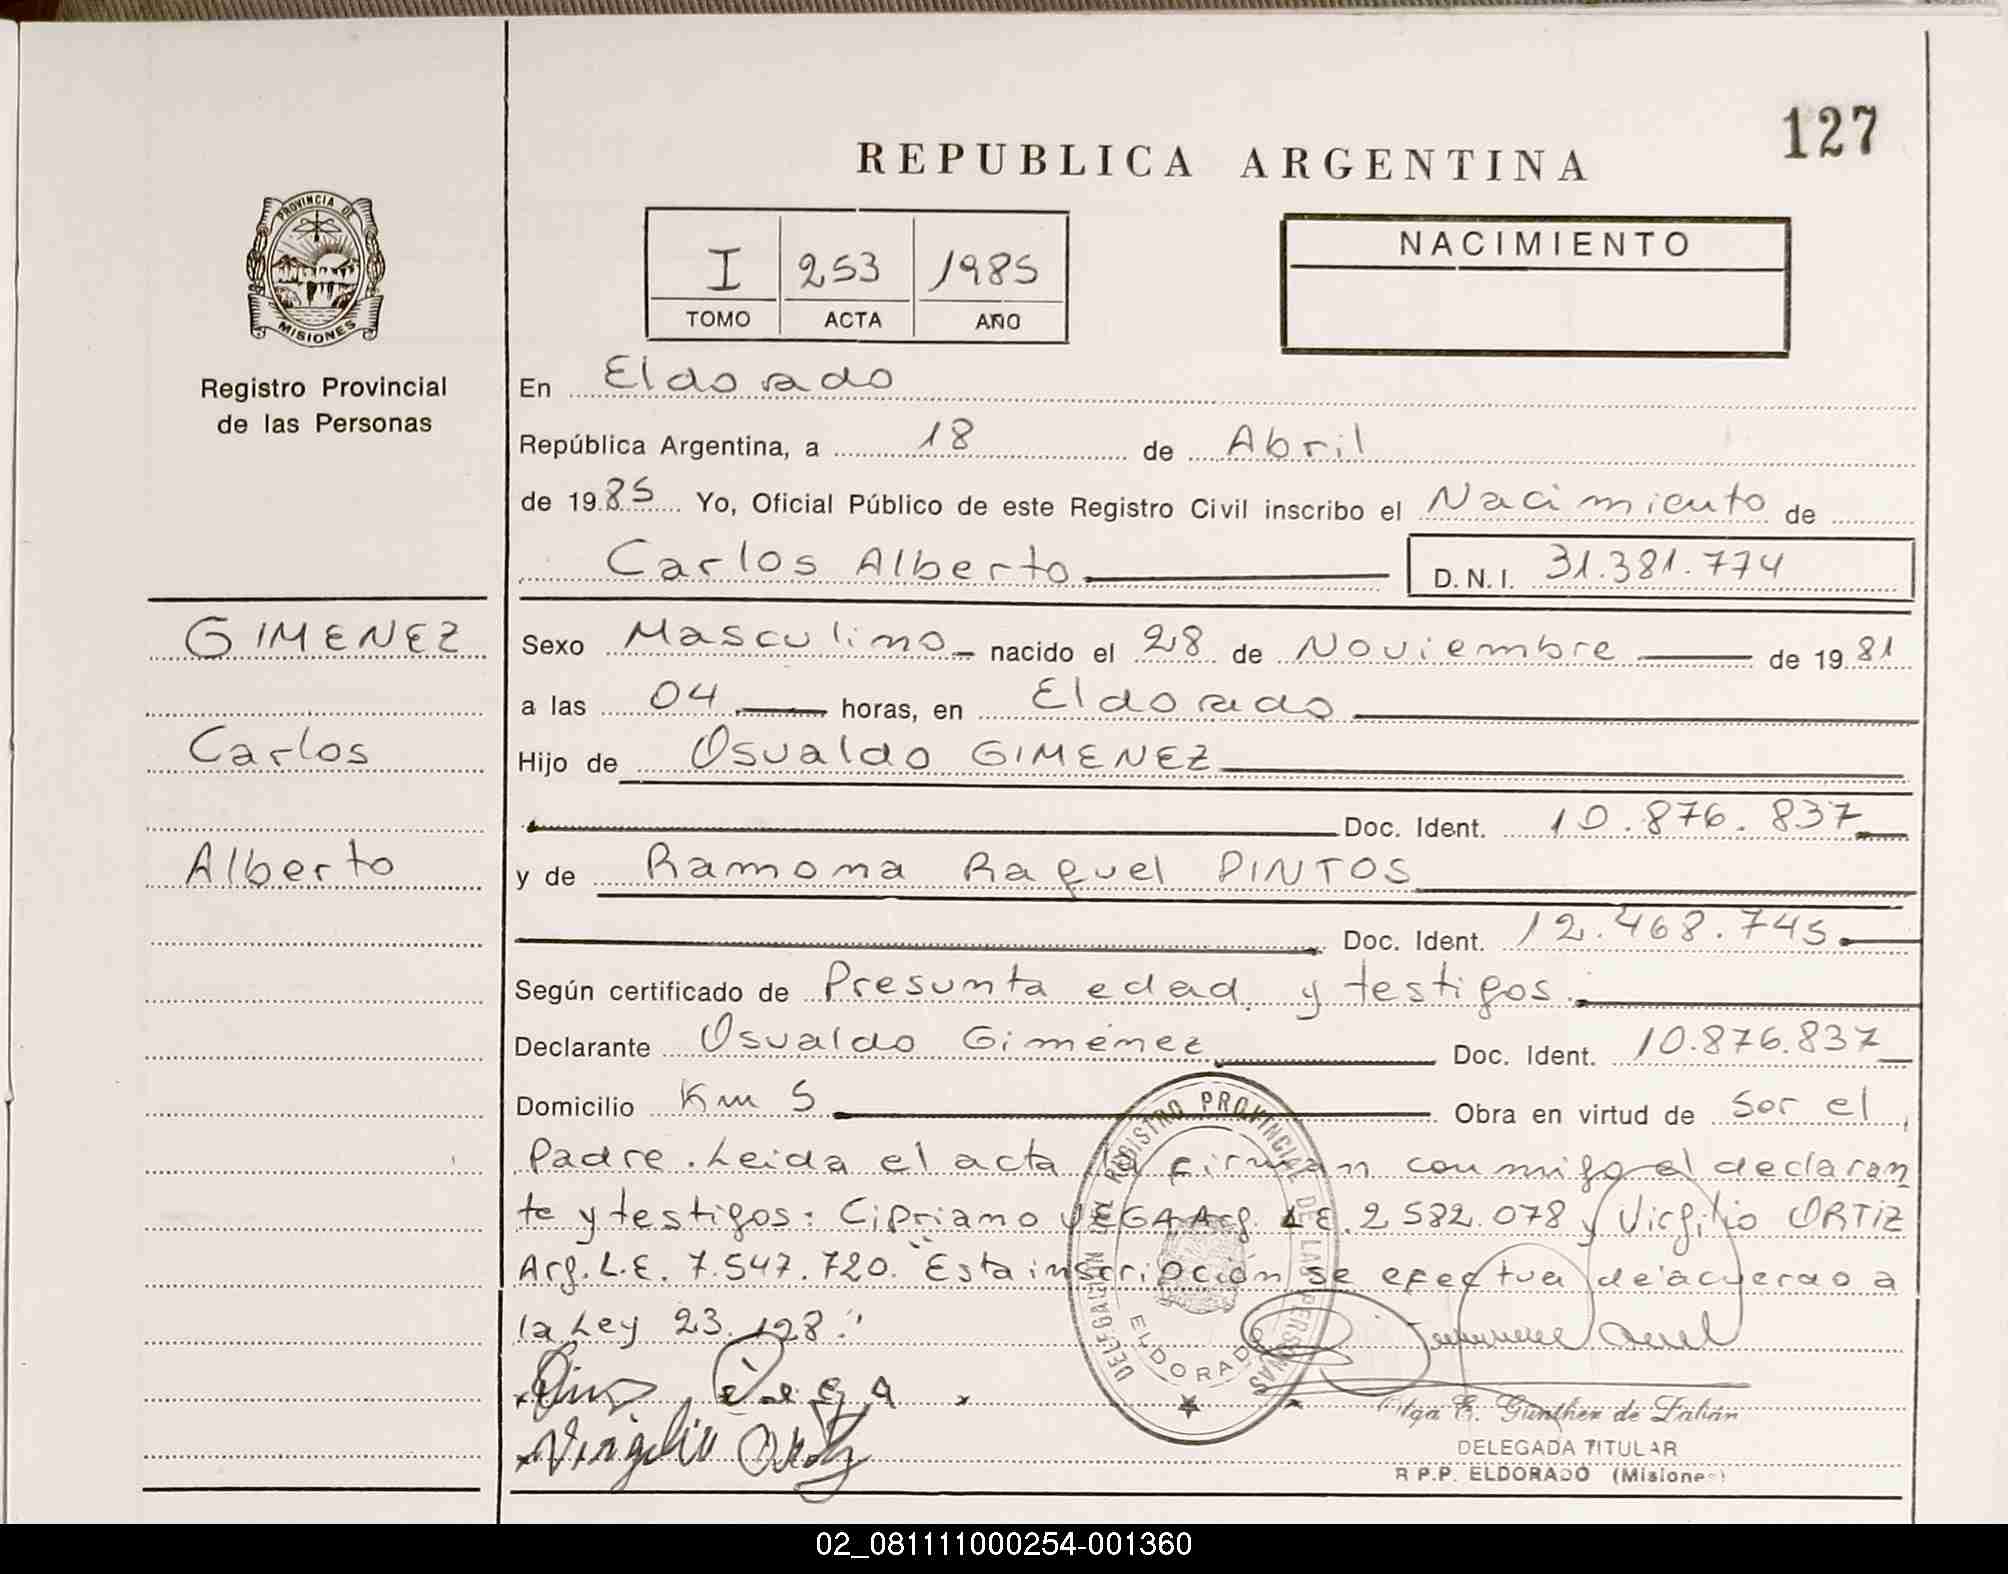 127
REPUBLICA ARGENTINA
PROVINCIA DE
MISIONES
Registro Provincial
de las Personas
I 253 1985
TOMO ACTA AÑO
NACIMIENTO
En Eldorado
República Argentina, a 18 de Abril
de 1985 Yo, Oficial Público de este Registro Civil inscribo el Nacimiento de
Carlos Alberto D.N.I. 31.381.774
GIMENEZ
Carlos
Alberto
Sexo Masculino nacido el 28 de Noviembre de 1981
a las 04 horas, en Eldorado
Hijo de Osvaldo GIMENEZ
Doc. Ident. 10.876.837
y de Ramona Raquel PINTOS
Doc. Ident. 12.468.745
Según certificado de Presunta edad y testigos.
Declarante Osvaldo Gimenez Doc. Ident. 10.876.837
Domicilio Km 5 Obra en virtud de Ser el
Padre. Leida el acta la firman conmigo el declaran
te y testigos: Cipriano VEGA Arg. L.E. 2.582.078 y Virgilio ORTIZ
Arg. L.E. 7.547.720. "Esta inscripción se efectua de acuerdo a
la Ley 23.128."
DELEGACIÓN DEL REGISTRO PROVINCIAL DE LAS PERSONAS
ELDORADO
Vega
Virgilio Ortiz
Olga E. Günther de Lalián
DELEGADA TITULAR
R.P.P. ELDORADO (Misiones)
02_081111000254-001360